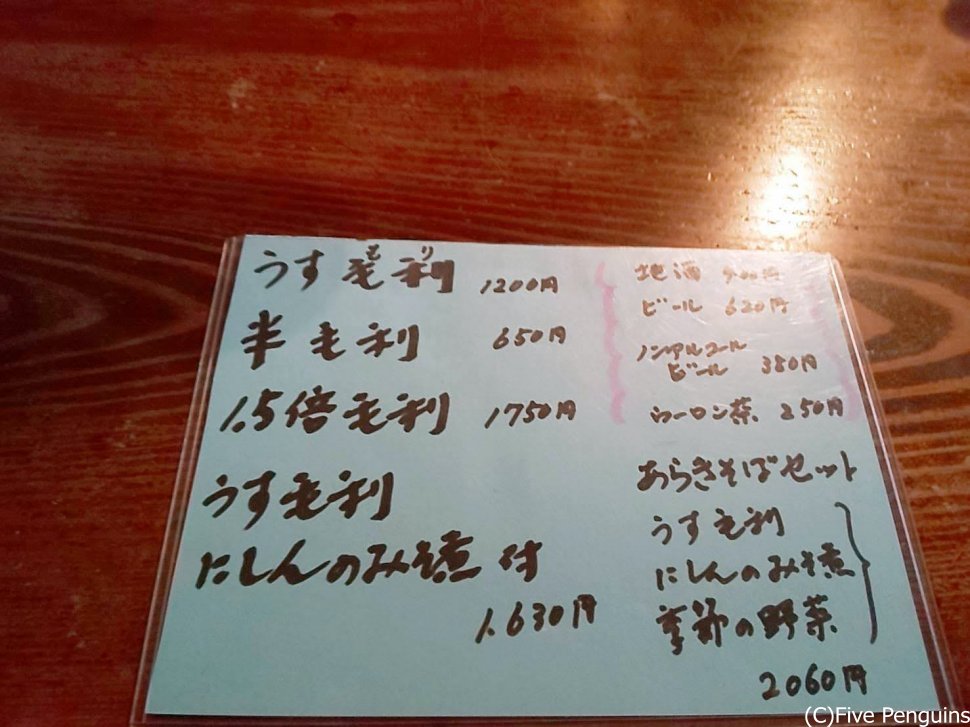 もり
うす毛利 1200円
半毛利 650円
1.5倍毛利 1750円
うす毛利
にしんのみそ煮 付
1.630円
地酒
ビール 620円
ノンアルコール
ビール 380円
ウーロン茶 250円
あらきそばセット
うす毛利
にしんのみそ煮
季節の野菜
2060円
(C)Five Penguins